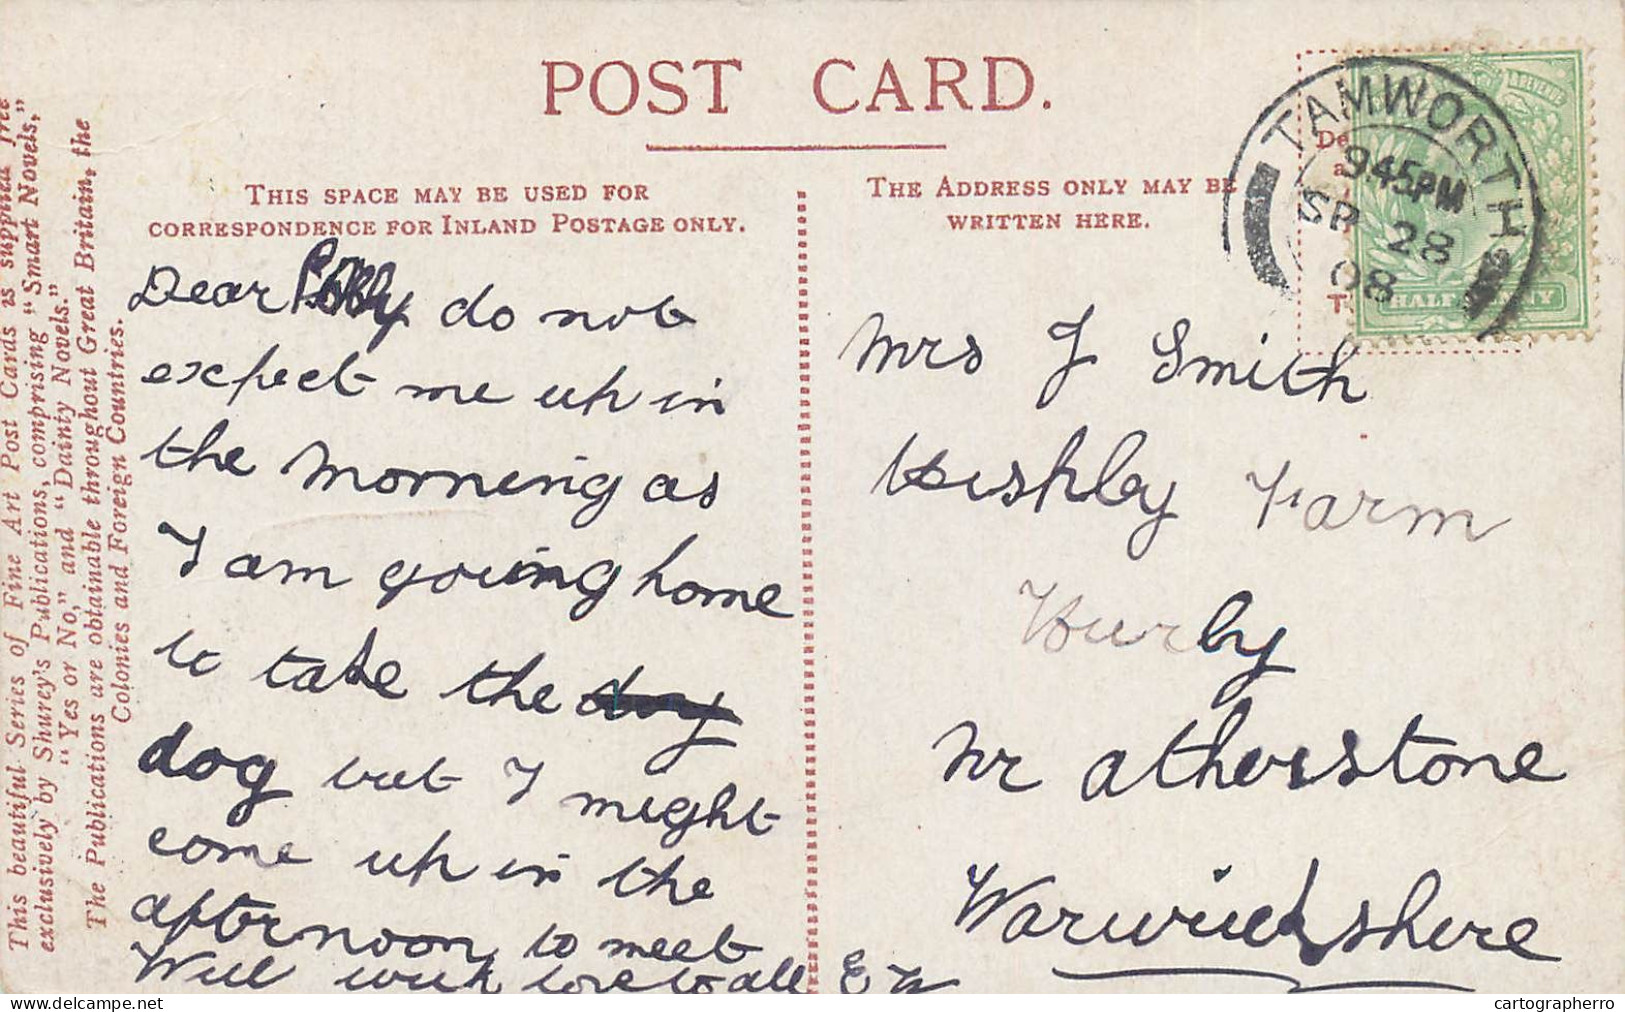 POST CARD.
THIS SPACE MAY BE USED FOR
CORRESPONDENCE FOR INLAND POSTAGE ONLY.
THE ADDRESS ONLY MAY BE
WRITTEN HERE.
This beautiful Series of Fine Art Post Cards is supplied free
exclusively by Shurey's Publications, comprising "Smart Novels,"
"Yes or No," and "Dainty Novels."
The Publications are obtainable throughout Great Britain, the
Colonies and Foreign Countries.
TAMWORTH
945PM
SP 28
08
Dear Polly do not
expect me up in
the morning as
I am going home
to take the
dog but I might
come up in the
afternoon to meet
Will with love to all E
Mrs J Smith
Farm
Hurley
Nr atherstone
Warwickshire
cartographerro